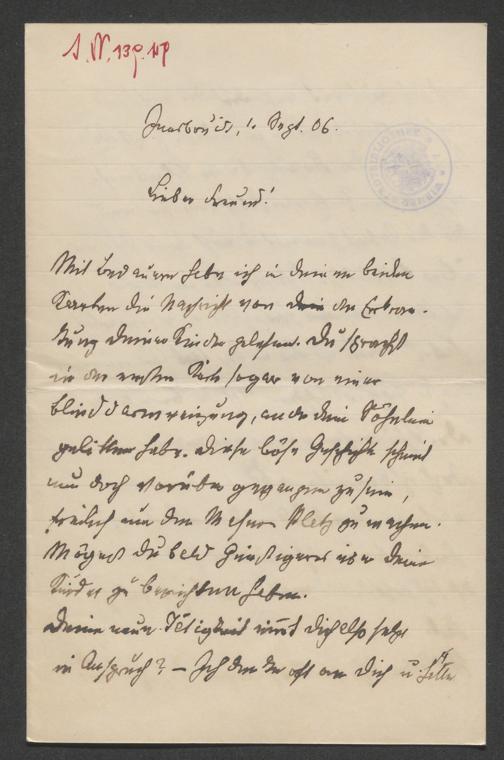 Innsbruck, 1. Sept. 06.
Lieber Freund!
Mit Bedauern habe ich in deinen beiden
Karten die Nachricht von der Erkran-
kung deiner Kinder gelesen. Du sprachst
in der ersten Karte sogar von einer
Blinddarmreizung, an der dein Söhnlein
gelitten habe. Diese böse Geschichte scheint
nun doch vorüber gegangen zu sein,
freilich um den Platz zu machen.
Mögest du bald Günstigeres über deine
Kinder zu berichten haben.
Deine neue Tätigkeit nimmt dich also sehr
in Anspruch? – Ich denke oft an Dich u.